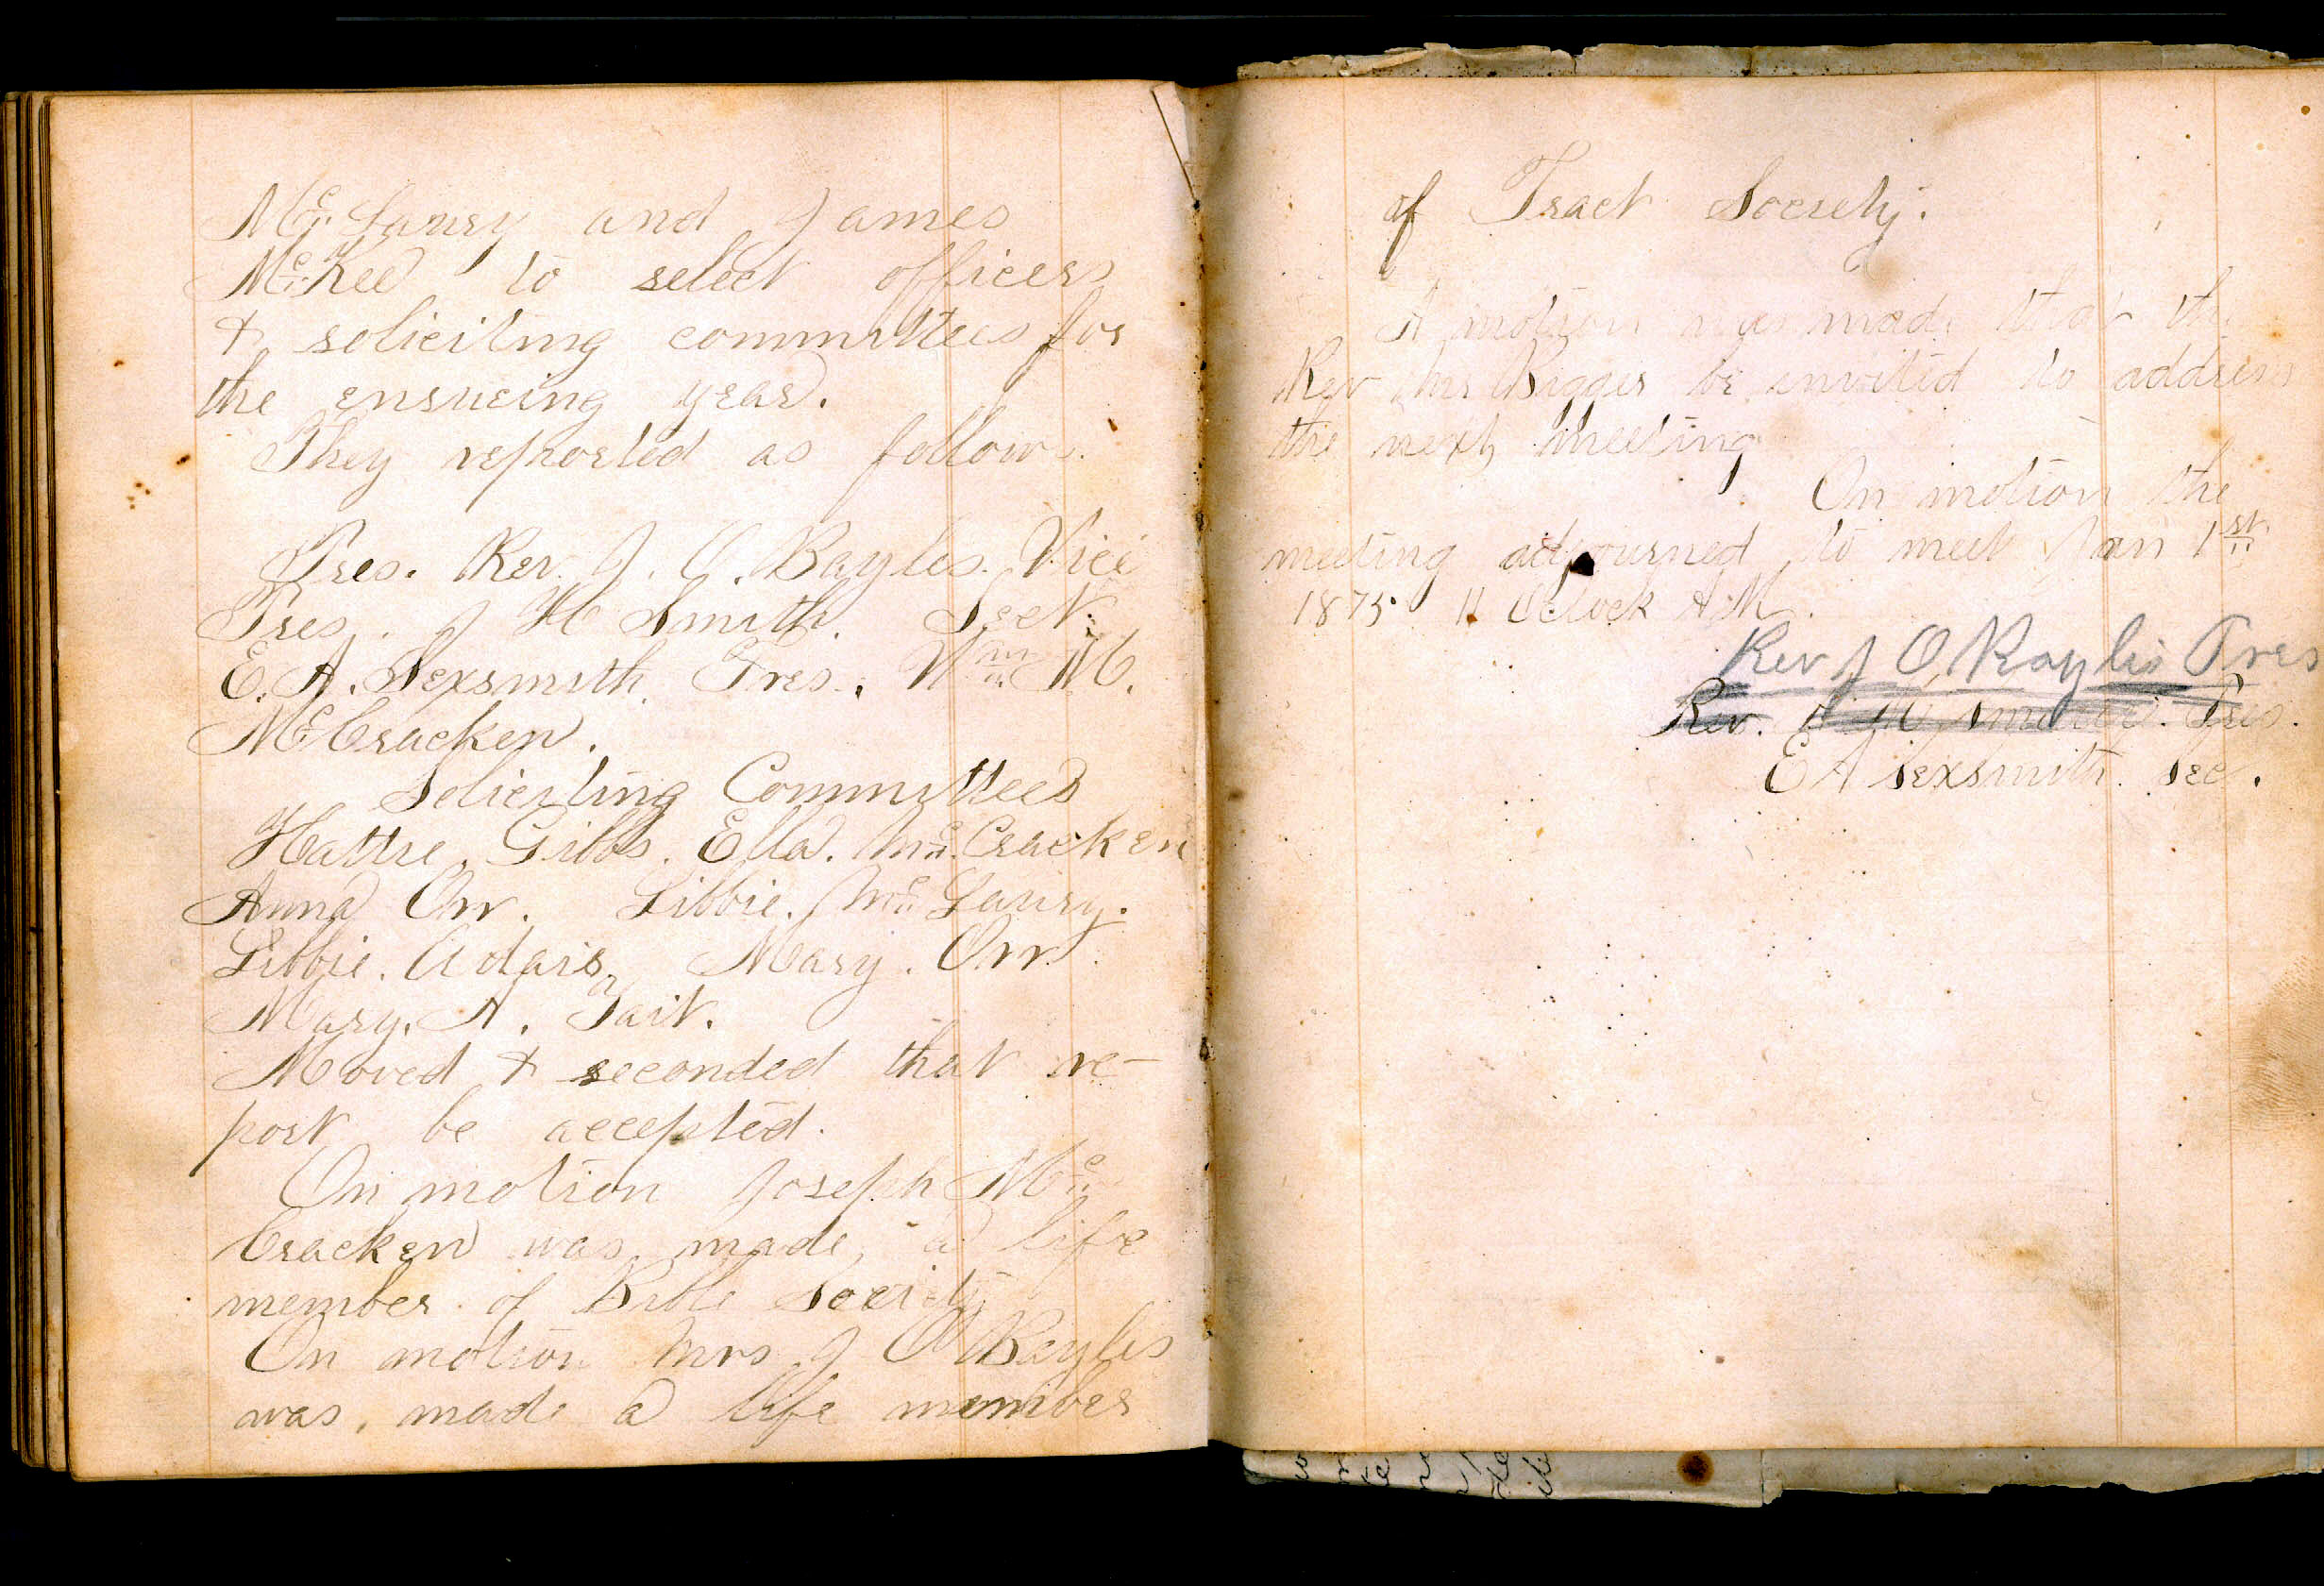 Mc Laury and James
McKee to select officers
& soliciting committees for
the ensueing year.
They reported as follows.
Pres. Rev. J. O. Bayles. Vice
Pres. J H Smith. Sect.
E. A. Sexsmith. Tres. Wm M.
McCracken.
Soliciting Committees
Hattie. Gibbs. Ella. Mc Cracken
Anna Orr. Libbie. Mc Laury.
Libbie. Adair. Mary. Orr.
Mary. A. Tait.
Moved & seconded that re-
port be accepted.
On motion Joseph Mc
Cracken was made a life
member of Bible Society
On motion Mrs J O Bayles
was, made a life member
of Tract Society.
A motion was made that the
Rev Mr Bigger be invited to address
the next meeting
On motion the
meeting adjourned to meet Jan 1st
1875 11 Oclock A.M.
Rev J O Bayles Pres
Rev. Pres.
E A Sexsmith. Sec.